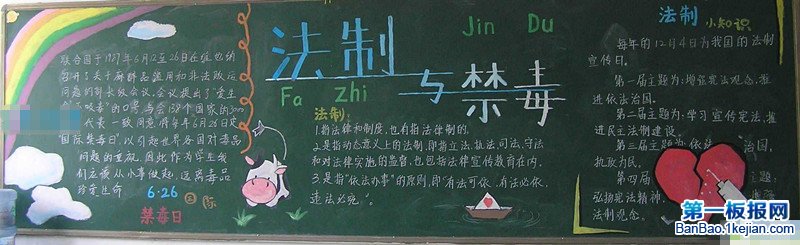 联合国于1987年6月12至26日在维也纳
召开了关于麻醉品滥用和非法贩运
问题的部长级会议,会议提出了"爱生
命,不吸毒"的口号,与会138个国家的3000
代表一致同意将每年6月26日定
国际禁毒日",以引起世界各国对毒品
问题的重视,因此作为学生我
们应该从小事做起,远离毒品
珍爱生命
6·26 国际
禁毒日
法制与禁毒
Fa Zhi
Jin Du
法制:
1.指法律和制度,也有指法律制的。
2.是指动态意义上的法制,即指立法、执法、司法、守法
和对法律实施的监督,也包括法律宣传教育在内。
3.是指"依法办事"的原则,即"有法可依、有法必依、
违法必究。"。
法制 小知识
每年的12月4日为我国的法制
宣传日。
第一届主题为:增强宪法观念,推
进依法治国。
第二届主题为:学习宣传宪法,推
进民主法制建设。
第三届主题为:依 治国,
执政为民。
第四届 主题:
弘扬宪法精神,
法制观念。
第一板报网
BanBao.1kejian.com